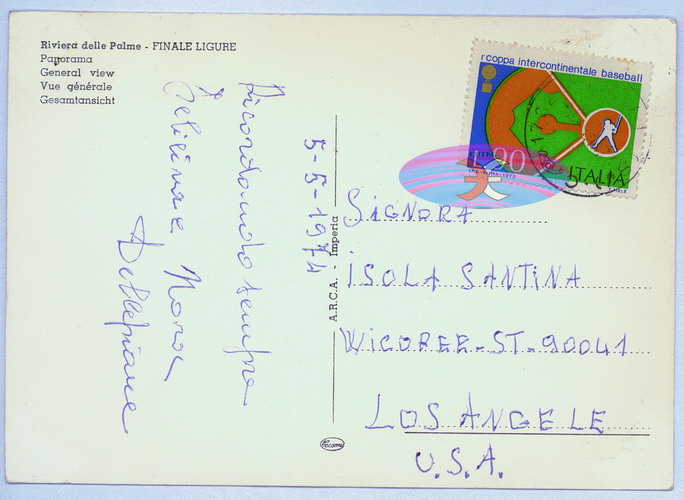 Riviera delle Palme - FINALE LIGURE
Panorama
General view
Vue générale
Gesamtansicht
1ª coppa intercontinentale baseball
L. 90
ITALIA
5-5-1974
Ricordandola sempre
Felicinae Nora
Dellepiane
A.R.C.A. - Imperia
SiGNORA
iSOLA SANTiNA
WiCOREE-ST-90041
LOS ANGELE
U.S.A.